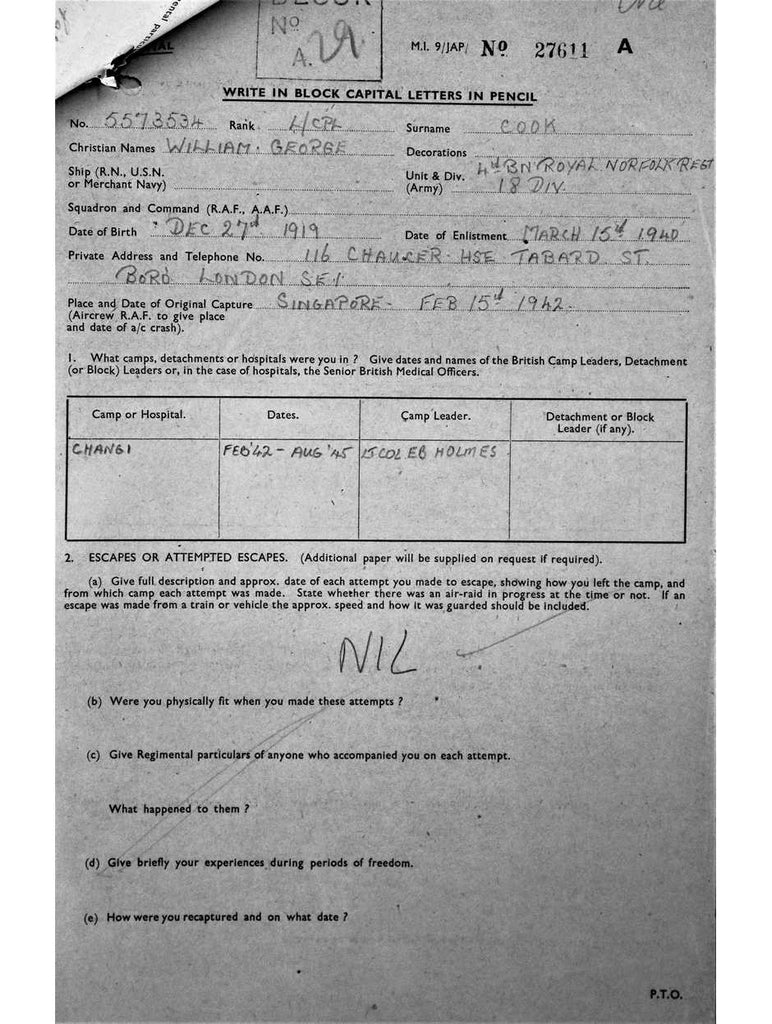 ental partic
BLOCK
Nº
A. 29
M.I. 9/JAP/ Nº 27611 A
WRITE IN BLOCK CAPITAL LETTERS IN PENCIL
No. 5573534 Rank L/CPL Surname COOK
Christian Names WILLIAM. GEORGE Decorations
Ship (R.N., U.S.N. or Merchant Navy) Unit & Div. (Army) 4th BN ROYAL NORFOLK REGT 18 DIV.
Squadron and Command (R.A.F., A.A.F.)
Date of Birth DEC 27th 1919 Date of Enlistment MARCH 15th 1940
Private Address and Telephone No. 116 CHAUCER HSE TABARD ST.
BORO LONDON SE1
Place and Date of Original Capture SINGAPORE - FEB 15th 1942.
(Aircrew R.A.F. to give place
and date of a/c crash).
1. What camps, detachments or hospitals were you in ? Give dates and names of the British Camp Leaders, Detachment
(or Block) Leaders or, in the case of hospitals, the Senior British Medical Officers.
Camp or Hospital. Dates. Camp Leader. Detachment or Block Leader (if any).
CHANGI FEB '42 - AUG '45 LT COL EB HOLMES
2. ESCAPES OR ATTEMPTED ESCAPES. (Additional paper will be supplied on request if required).
(a) Give full description and approx. date of each attempt you made to escape, showing how you left the camp, and
from which camp each attempt was made. State whether there was an air-raid in progress at the time or not. If an
escape was made from a train or vehicle the approx. speed and how it was guarded should be included.
NIL
(b) Were you physically fit when you made these attempts ?
(c) Give Regimental particulars of anyone who accompanied you on each attempt.
What happened to them ?
(d) Give briefly your experiences during periods of freedom.
(e) How were you recaptured and on what date ?
P.T.O.